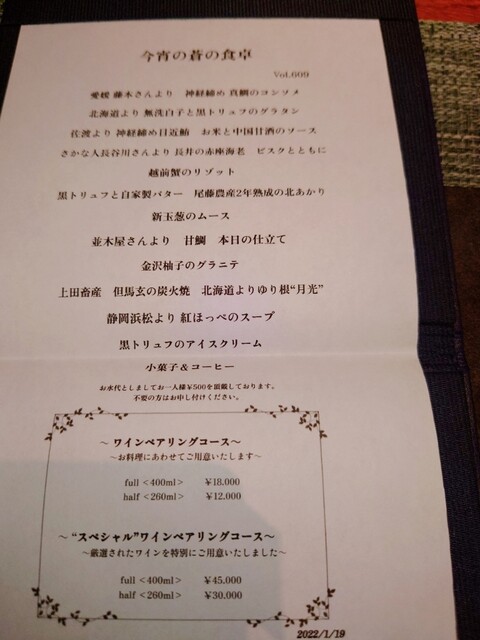 今宵の蒼の食卓
Vol.609
愛媛 藤本さんより 神経締め 真鯛のコンソメ
北海道より 無洗白子と黒トリュフのグラタン
佐渡より 神経締め目近鮪 お米と中国甘酒のソース
さかな人長谷川さんより 長井の赤座海老 ビスクとともに
越前蟹のリゾット
黒トリュフと自家製バター 尾藤農産2年熟成の北あかり
新玉葱のムース
並木屋さんより 甘鯛 本日の仕立て
金沢柚子のグラニテ
上田畜産 但馬玄の炭火焼 北海道よりゆり根“月光”
静岡浜松より 紅ほっぺのスープ
黒トリュフのアイスクリーム
小菓子＆コーヒー
お水代としましてお一人様¥500を頂戴しております。
不要の方はお申し付けください。
～ ワインペアリングコース～
～お料理にあわせてご用意いたします～
full <400ml> ¥18,000
half <260ml> ¥12,000
～ “スペシャル”ワインペアリングコース～
～厳選されたワインを特別にご用意いたしました～
full <400ml> ¥45,000
half <260ml> ¥30,000
2022/1/19